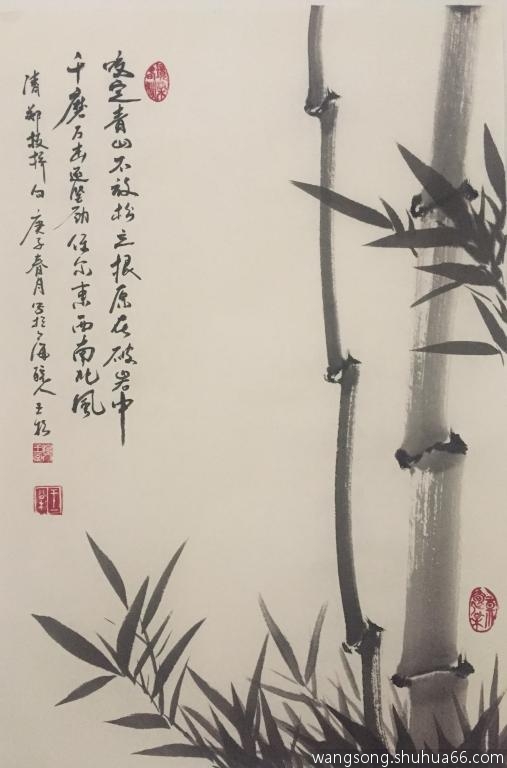 咬定青山不放松立根原在破岩中
千磨万击还坚劲任尔東西南北風
清郑板桥句庚子春月写于上海人王松
wangsong.shuhua66.com